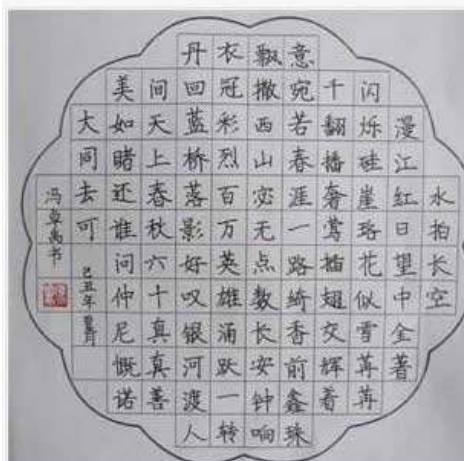 水拍长空
漫江紅日望中全著
闪烁硅崖珞花似雪苒苒
千翻播奢莺插翅交辉着
意宛若春涯一路绮香前鑫珠
飘撒西山宓无点数长安钟响
衣冠彩烈百万英雄涌跃一转
丹回蓝桥落影好叹银河渡人
间天上春秋六十真真善
美如睹还谁问仲尼慨诺
大同去可
己丑年
冯卓禹书